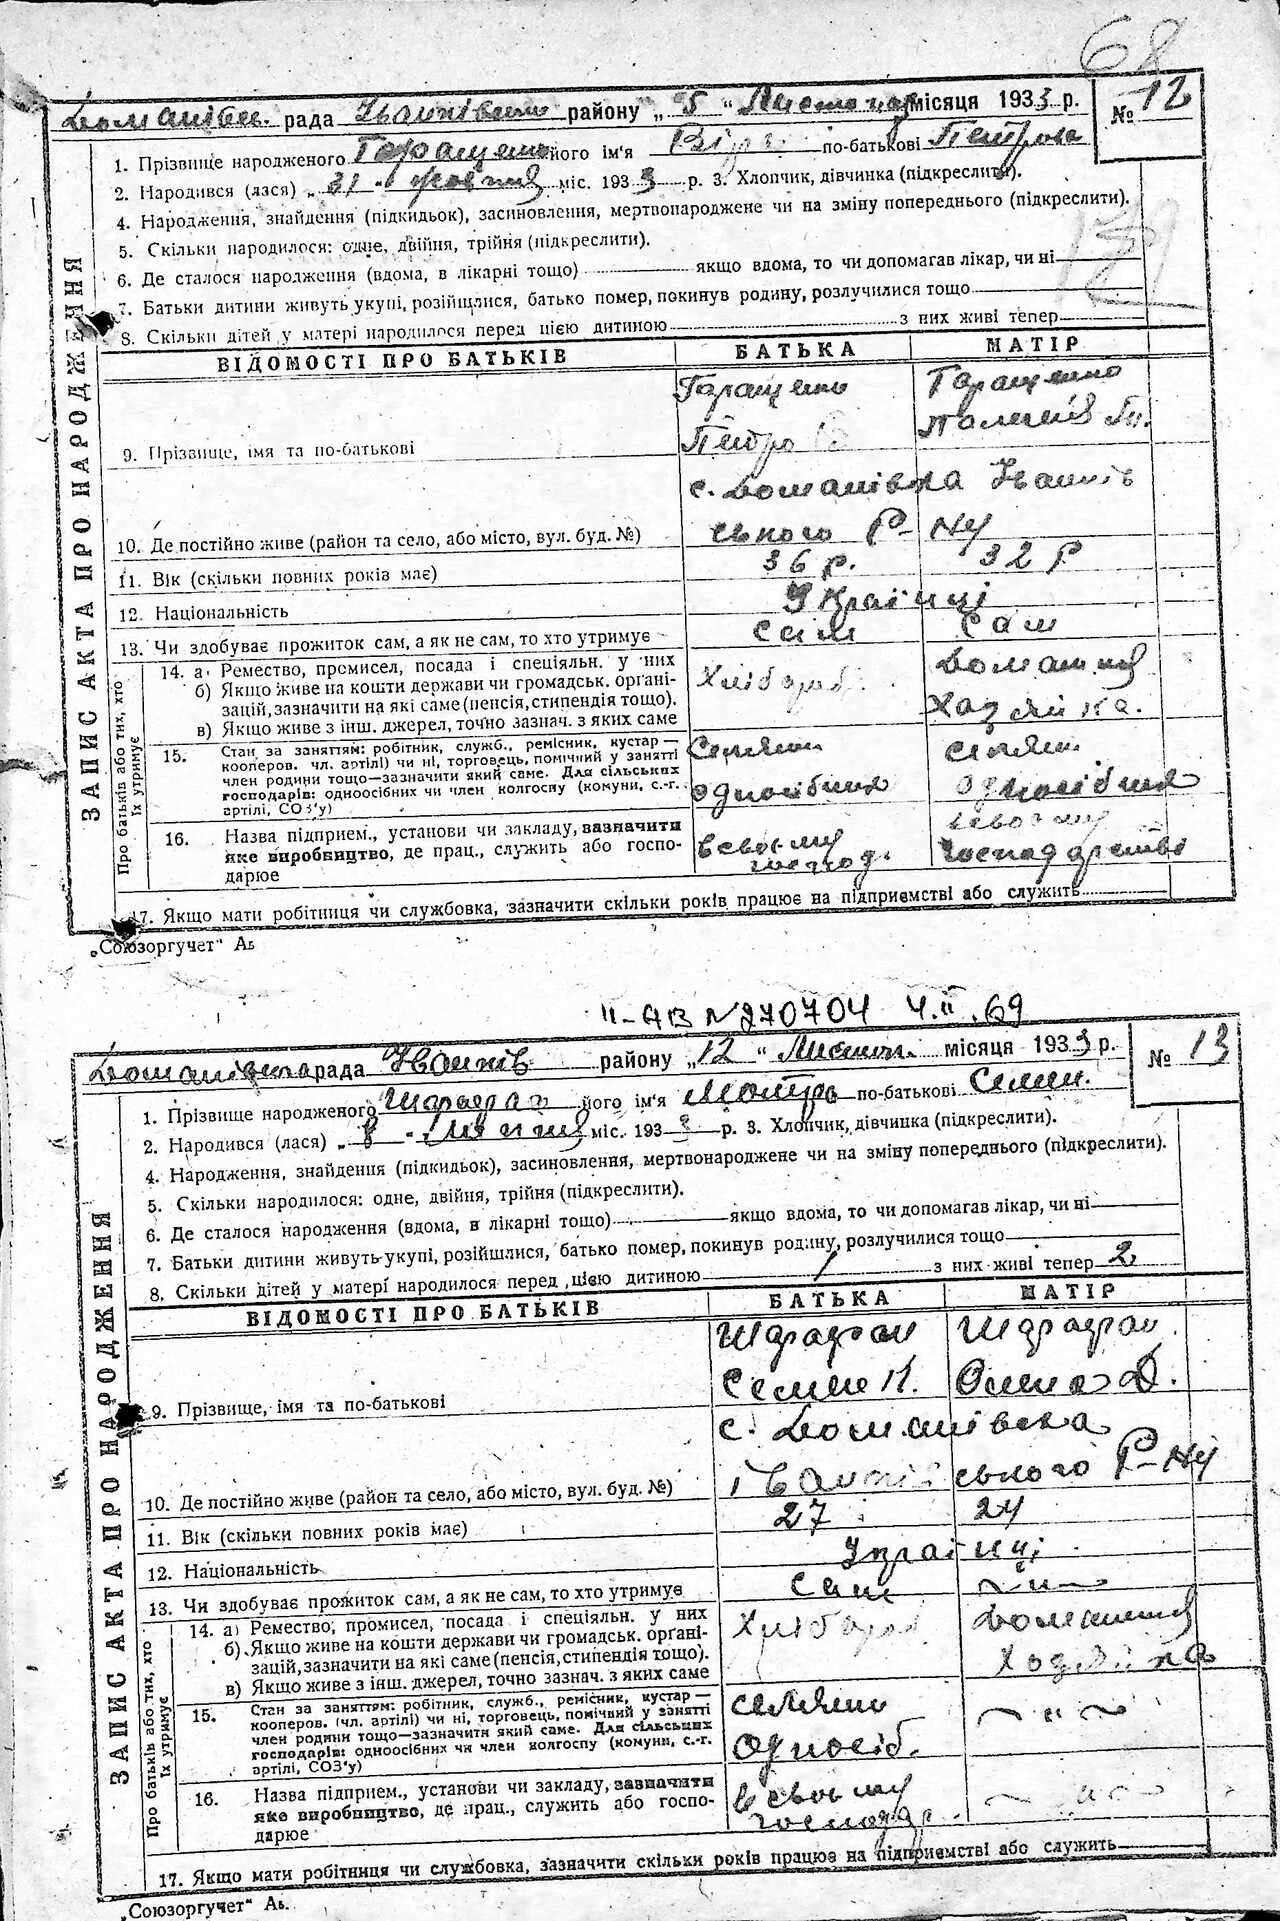 68
Доманівск. рада Іванківськ району „5“ Листопад місяця 1933 р.
№ 12
1. Прізвище народженого Гаращенко його ім'я Віра по-батькові Петрова
2. Народився (лася) „31“ жовтня міс. 1933 р. 3. Хлопчик, дівчинка (підкреслити).
4. Народження, знайдення (підкидьок), засиновлення, мертвонароджене чи на зміну попереднього (підкреслити).
5. Скільки народилося: одне, двійня, трійня (підкреслити).
6. Де сталося народження (вдома, в лікарні тощо) якщо вдома, то чи допомагав лікар, чи ні
7. Батьки дитини живуть укупі, розійшлися, батько помер, покинув родину, розлучилися тощо
8. Скільки дітей у матері народилося перед цією дитиною з них живі тепер
ЗАПИС АКТА ПРО НАРОДЖЕННЯ
ВІДОМОСТІ ПРО БАТЬКІВ БАТЬКА МАТІР
Гаращенко Гаращенко
9. Прізвище, імя та по-батькові Петро
с. Доманівка Іванків
10. Де постійно живе (район та село, або місто, вул. буд. №) ського Р-ну
11. Вік (скільки повних років має) 36 р. 32 р
12. Національність Українці
13. Чи здобуває прожиток сам, а як не сам, то хто утримує сам сам
Про батьків або тих, хто їх утримує
14. а) Ремество, промисел, посада і спеціяльн. у них Хлібороб Домашня
б) Якщо живе на кошти держави чи громадськ. органі-
зацій, зазначити на які саме (пенсія, стипендія тощо). Хазяйка.
в) Якщо живе з інш. джерел, точно зазнач. з яких саме
15. Стан за заняттям: робітник, служб., ремісник, кустар — Селянин селян
кооперов. чл. артілі) чи ні, торговець, помічний у занятті
член родини тощо—зазначити який саме. Для сільських
господарів: одноосібних чи член колгоспу (комуни, с.-г. одноосібник одноосібния
артілі, СОЗ'у)
16. Назва підприєм., установи чи закладу, зазначити в своєму своєму
яке виробництво, де прац., служить або госпо- господ. господарстві
дарює
17. Якщо мати робітниця чи службовка, зазначити скільки років працює на підприємстві або служить
„Союзоргучет“ Аь
II-АВ №270704 4.II.69
Доманівська рада Іванків району „12“ Листоп. місяця 1933 р.
№ 13
1. Прізвище народженого його ім'я Мотря по-батькові Семен.
2. Народився (лася) „8“ міс. 1933 р. 3. Хлопчик, дівчинка (підкреслити).
4. Народження, знайдення (підкидьок), засиновлення, мертвонароджене чи на зміну попереднього (підкреслити).
5. Скільки народилося: одне, двійня, трійня (підкреслити).
6. Де сталося народження (вдома, в лікарні тощо) якщо вдома, то чи допомагав лікар, чи ні
7. Батьки дитини живуть укупі, розійшлися, батько помер, покинув родину, розлучилися тощо
8. Скільки дітей у матері народилося перед цією дитиною 1 з них живі тепер 2
ЗАПИС АКТА ПРО НАРОДЖЕННЯ
ВІДОМОСТІ ПРО БАТЬКІВ БАТЬКА МАТІР
9. Прізвище, імя та по-батькові Семен
с. Доманівка
10. Де постійно живе (район та село, або місто, вул. буд. №) Іванківського Р-ну
11. Вік (скільки повних років має) 27 24
12. Національність Українці
13. Чи здобуває прожиток сам, а як не сам, то хто утримує сам ~"~
Про батьків або тих, хто їх утримує
14. а) Ремество, промисел, посада і спеціяльн. у них Хлібороб Домашня
б) Якщо живе на кошти держави чи громадськ. органі-
зацій, зазначити на які саме (пенсія, стипендія тощо). Ходзяйка
в) Якщо живе з інш. джерел, точно зазнач. з яких саме
15. Стан за заняттям: робітник, служб., ремісник, кустар — селянин ~"~
кооперов. (чл. артілі) чи ні, торговець, помічний у занятті
член родини тощо—зазначити який саме. Для сільських
господарів: одноосібних чи член колгоспу (комуни, с.-г. одноосіб.
артілі, СОЗ'у)
16. Назва підприєм., установи чи закладу, зазначити в своєму ~"~
яке виробництво, де прац., служить або госпо- господар.
дарює
17. Якщо мати робітниця чи службовка, зазначити скільки років працює на підприємстві або служить
„Союзоргучет“ Аь.